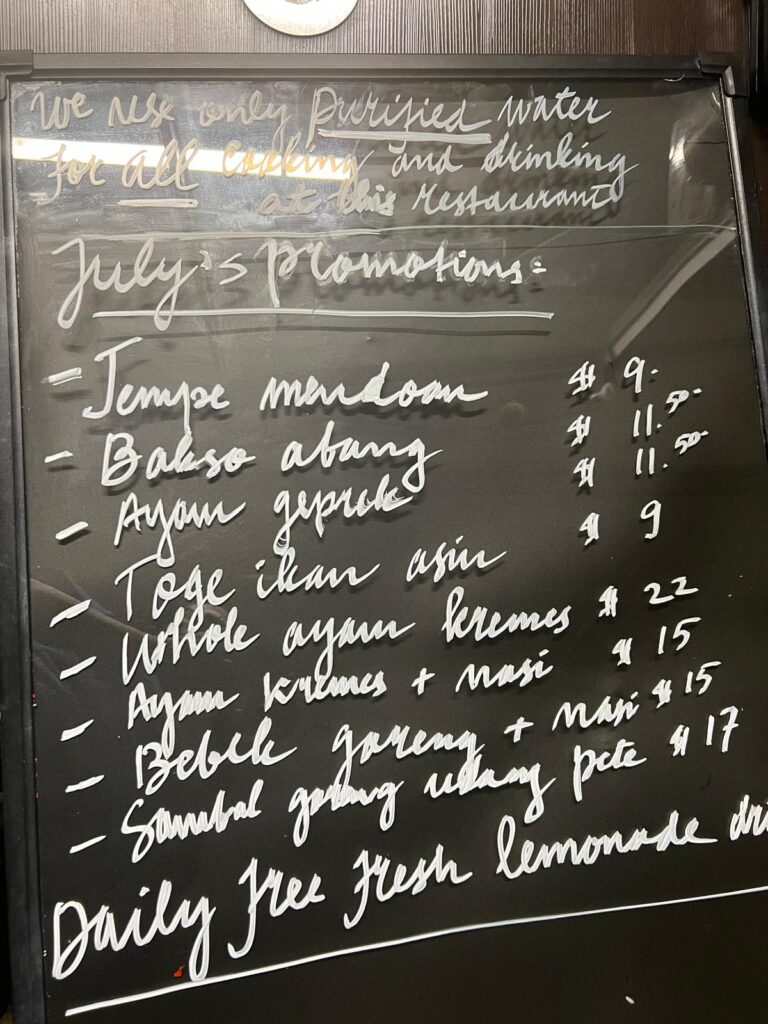 We use only purified water
for all cooking and drinking
at this restaurant
July's promotions:
- Tempe mendoan $ 9.-
- Bakso abang $ 11.50-
- Ayam geprek $ 11.50-
- Toge ikan asin $ 9
- Whole ayam kremes $ 22
- Ayam kremes + nasi $ 15
- Bebek goreng + nasi $ 15
- Sambal goreng udang pete $ 17
Daily free fresh lemonade dri